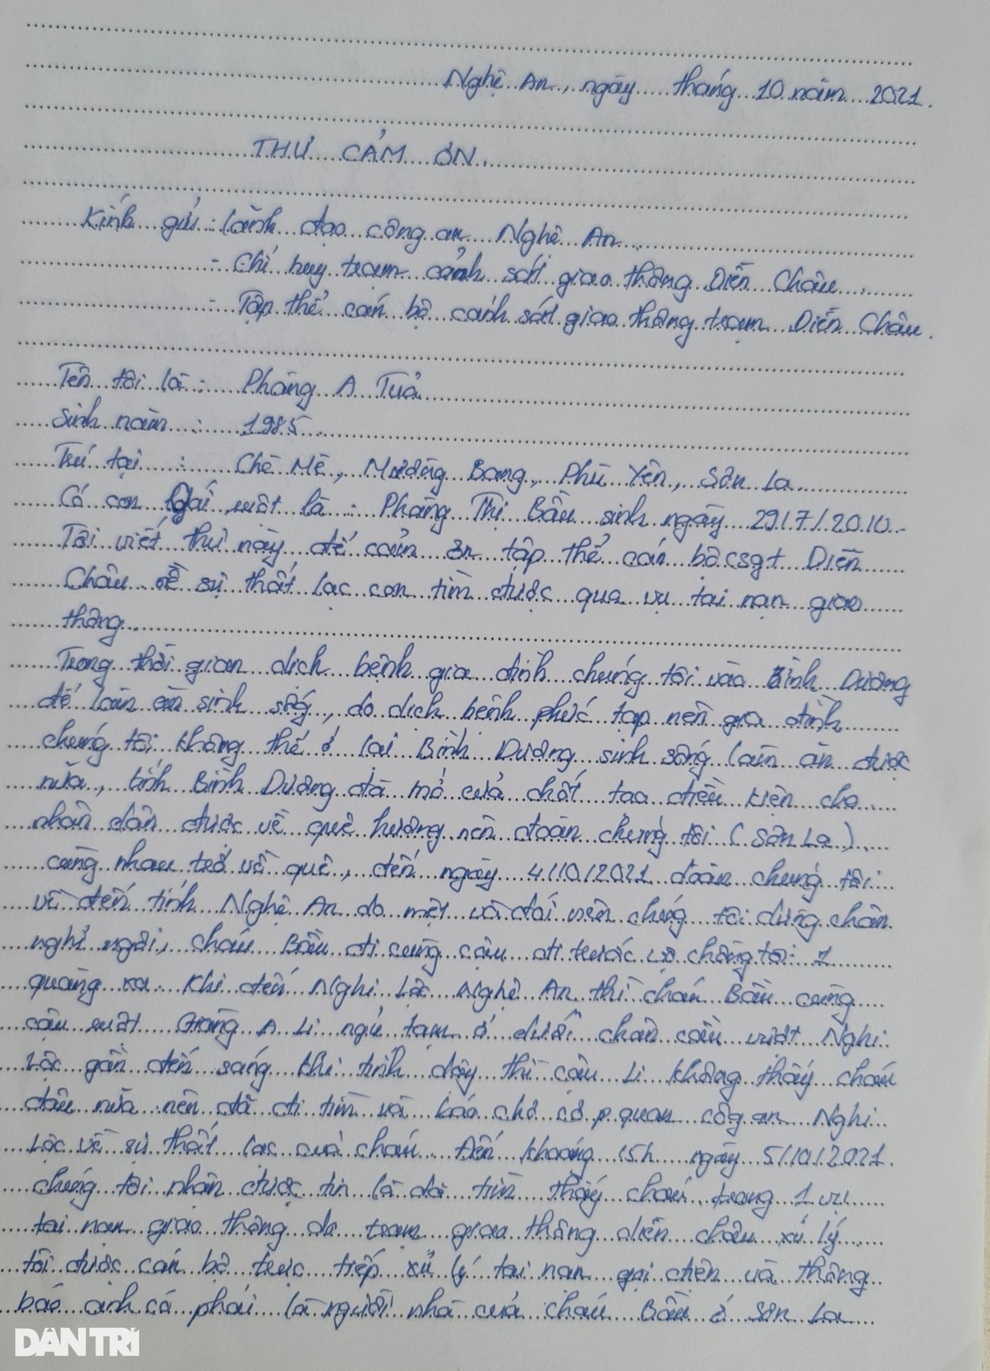 Nghệ An, ngày tháng 10 năm 2021.
THƯ CẢM ƠN.
Kính gửi: Lãnh đạo công an Nghệ An.
- Chỉ huy trạm cảnh sát giao thông Diễn Châu.
- Tập thể cán bộ cảnh sát giao thông trạm Diễn Châu.
Tên tôi là: Phàng A Tủa
Sinh năm: 1985.
Trú tại: Chè Mè, Mường Bang, Phù Yên, Sơn La.
Có con gái một là: Phàng Thị Bầu sinh ngày 29/7/2010.
Tôi viết thư này để cảm ơn tập thể cán bộ csgt Diễn
Châu về sự thất lạc con tìm được qua vụ tai nạn giao
thông.
Trong thời gian dịch bệnh gia đình chúng tôi vào Bình Dương
để làm ăn sinh sống, do dịch bệnh phức tạp nên gia đình
chúng tôi không thể ở lại Bình Dương sinh sống làm ăn được
nữa, tỉnh Bình Dương đã mở cửa chốt tạo điều kiện cho
nhân dân được về quê hương nên đoàn chúng tôi (Sơn La)
cùng nhau trở về quê, đến ngày 4/10/2021 đoàn chúng tôi
về đến tỉnh Nghệ An do mệt và đói nên chúng tôi dừng chân
nghỉ ngơi, cháu Bầu đi cùng cậu đi trước vợ chồng tôi 1
quãng xa. Khi đến Nghi Lộc Nghệ An thì cháu Bầu cùng
cậu ruột Giàng A Li ngủ tạm ở dưới chân cầu vượt Nghi
Lộc gần đến sáng khi tỉnh dậy thì cậu Li không thấy cháu
đâu nữa nên đã đi tìm và báo cho cơ p.quan công an Nghi
Lộc về sự thất lạc của cháu. Đến khoảng 15h ngày 5/10/2021.
chúng tôi nhận được tin là đã tìm thấy cháu trong 1 vụ
tai nạn giao thông do trạm giao thông diễn châu xử lý
tôi được cán bộ trực tiếp xử lý tai nạn gọi điện và thông
báo anh có phải là người nhà của cháu Bầu ở Sơn La
DÂN TRÍ